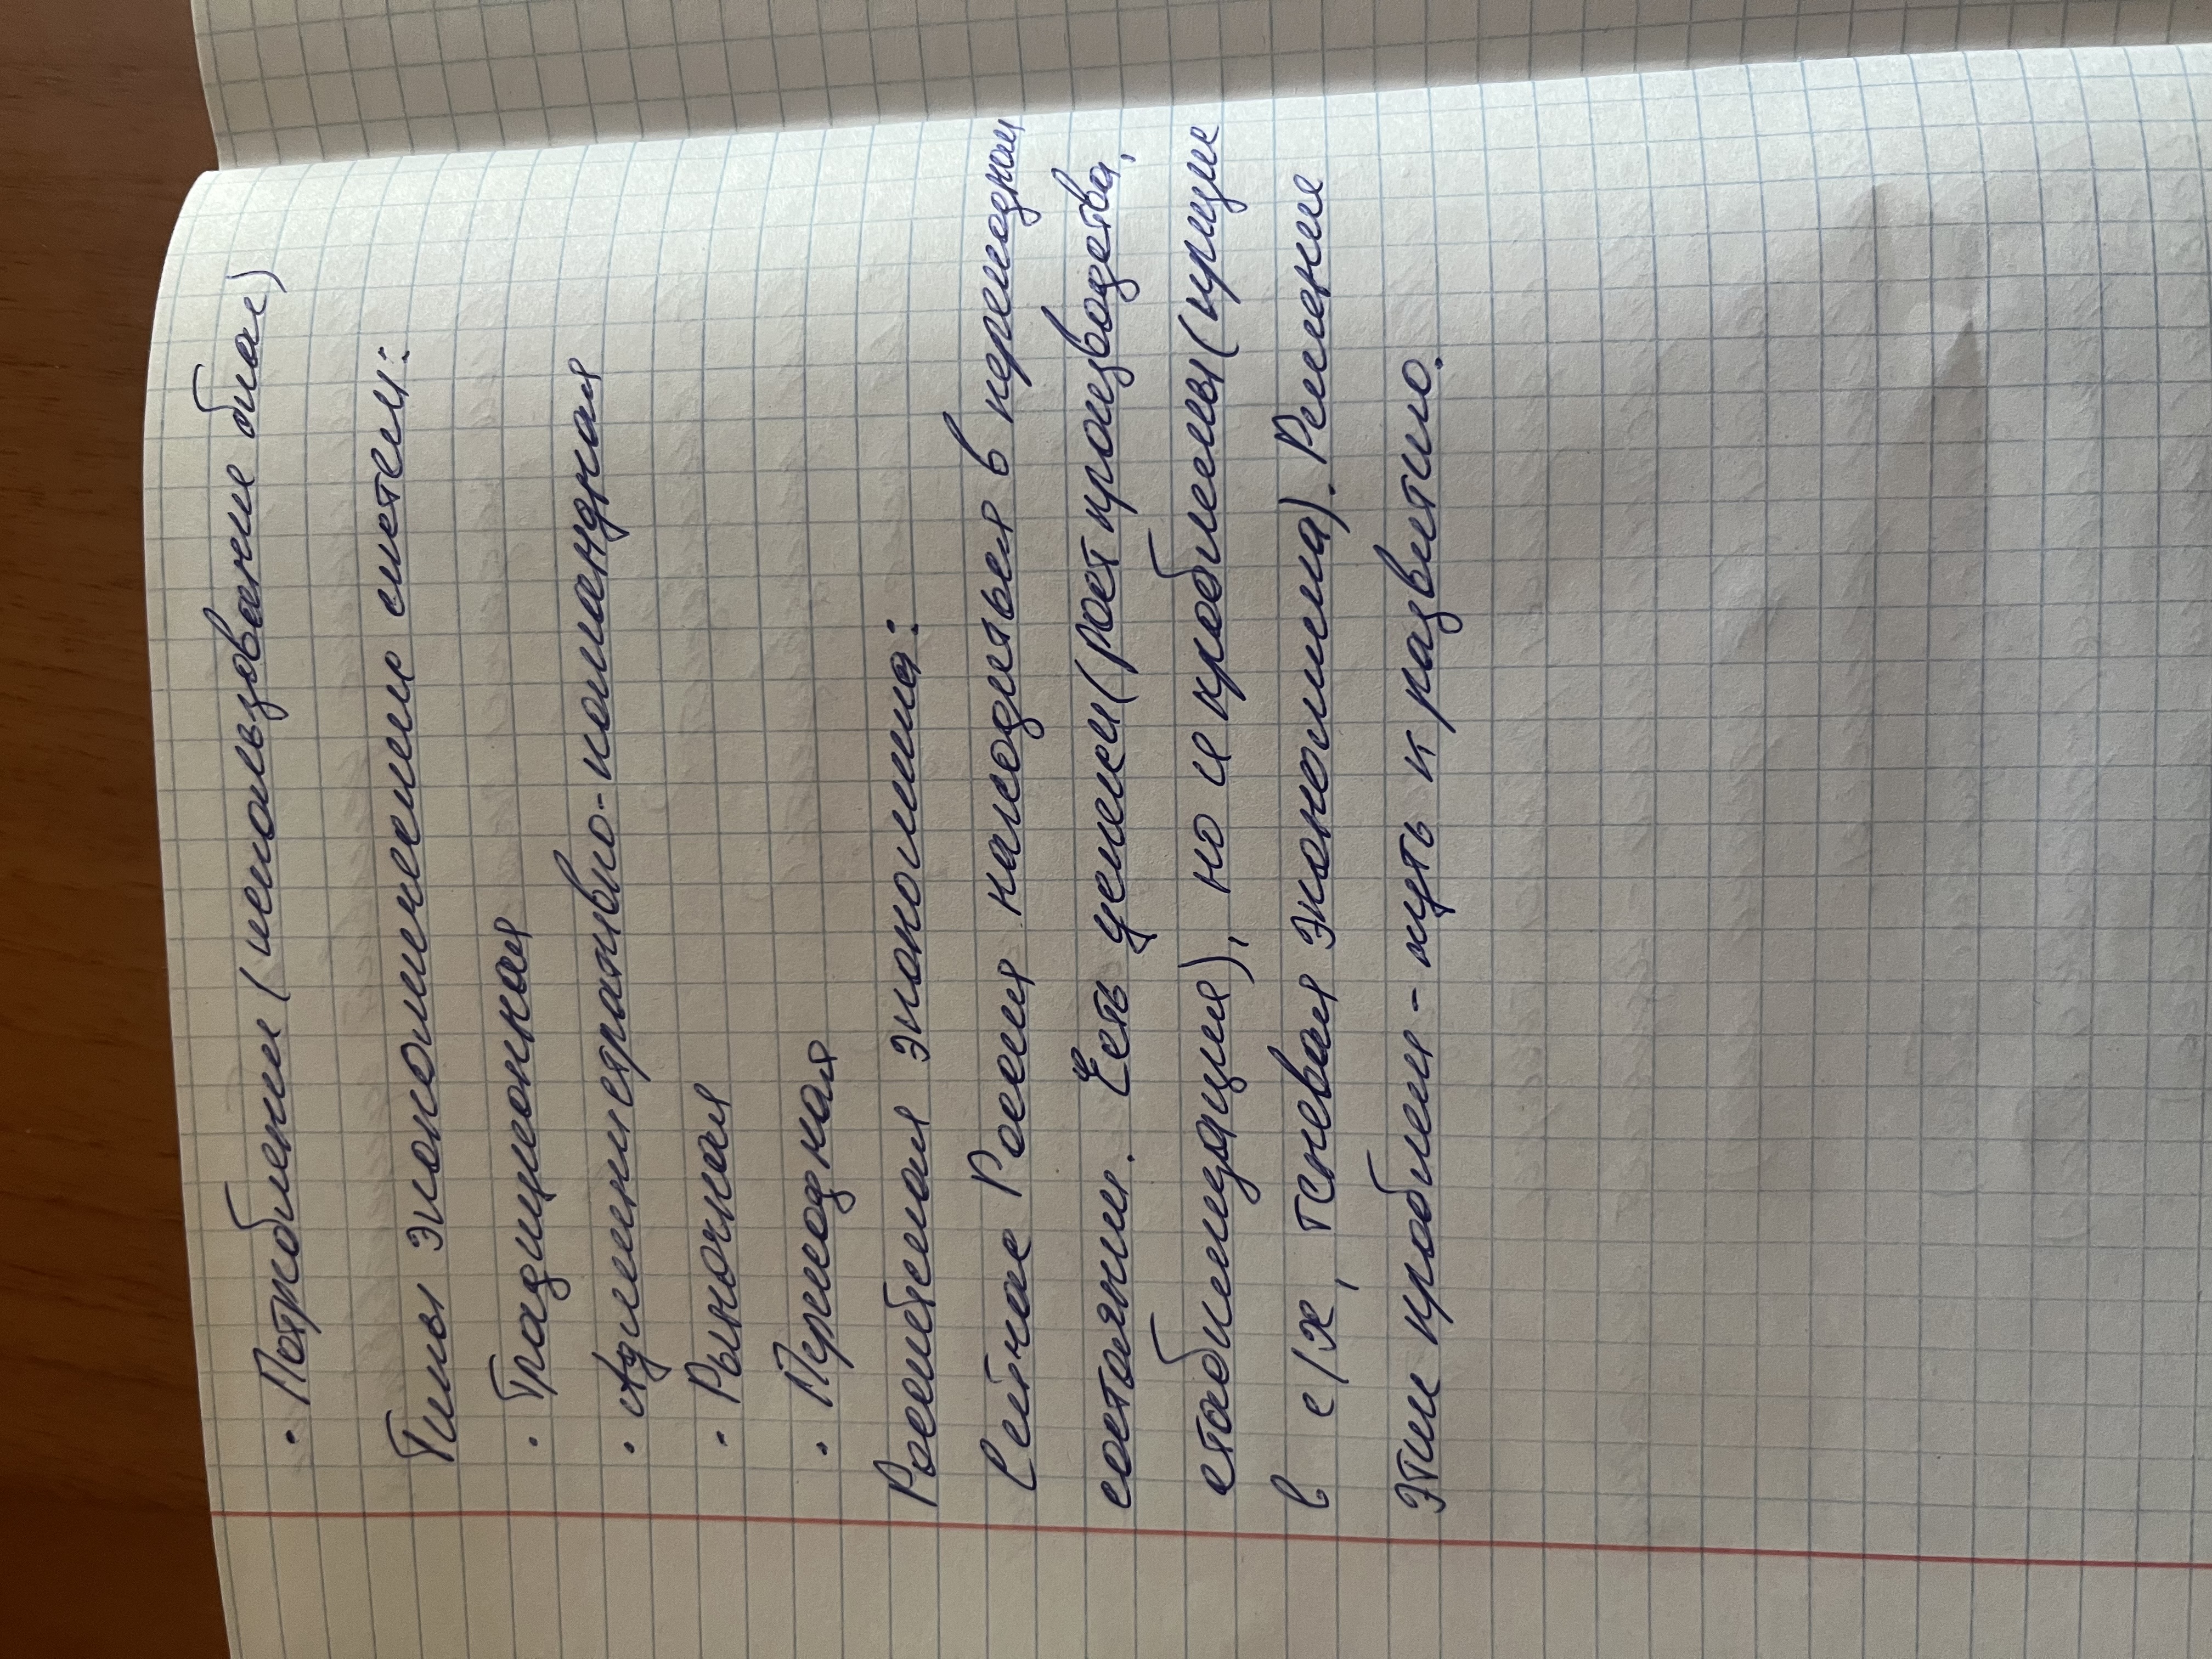 · Потребление (использование благ)
Типы экономических систем:
· Традиционная
· Административно-командная
· Рыночная
· Переходная
Российская экономика:
Сейчас Россия находится в переходном
состоянии. Есть успехи (рост производства,
стабилизация), но и проблемы (кризис
в с/х, теневая экономика). Решение
этих проблем - путь к развитию.